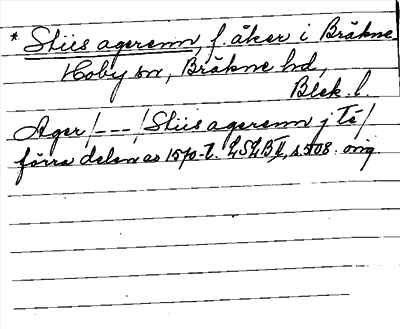 * Stiis agerenn, f. åker i Bräkne-
Hoby sn, Bräkne hd,
Blek. l.
Ager /---/ Stiis agerenn j Té /
förra delen av 1570-t. LSLB II, s. 508. orig.